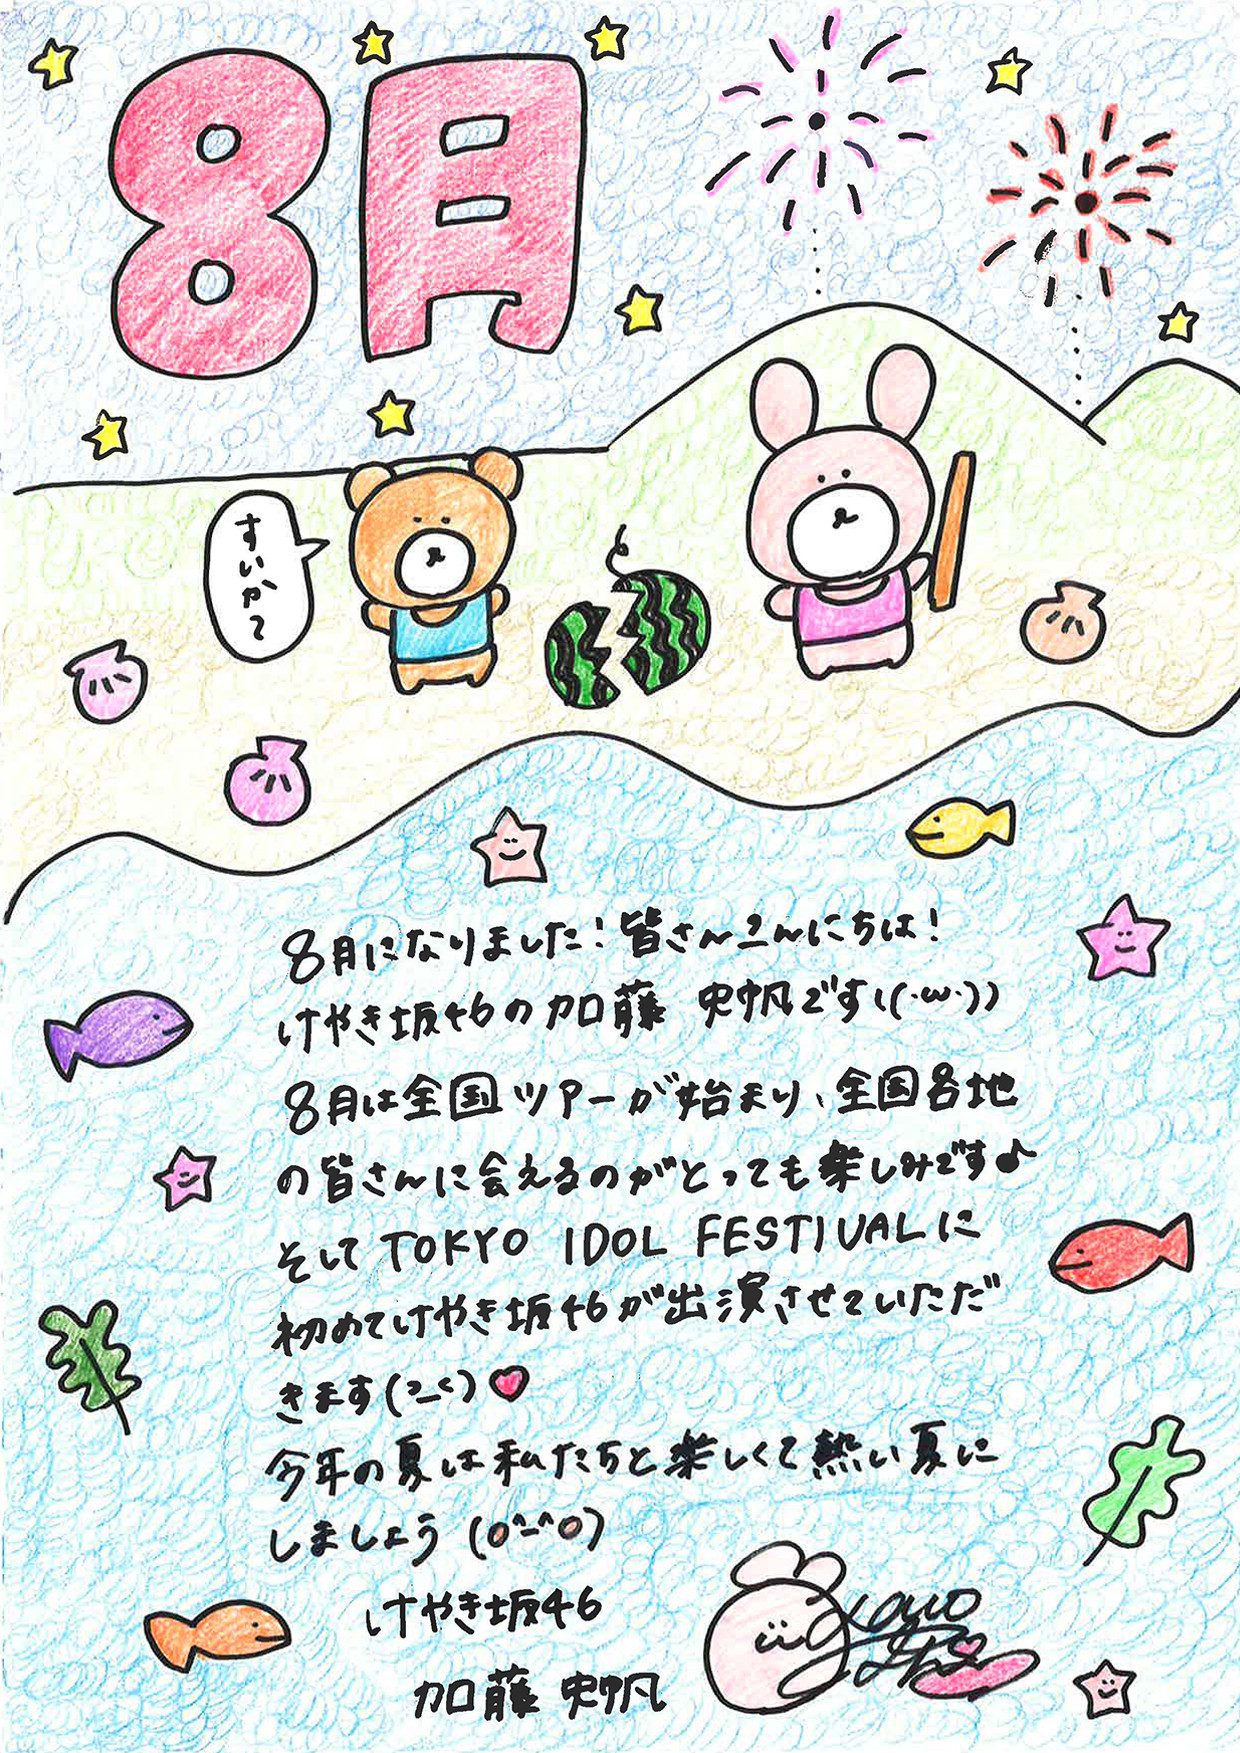 8月
すいか〜
8月になりました!皆さんこんにちは!
けやき坂46の加藤 史帆です((·ω·))
8月は全国ツアーが始まり、全国各地
の皆さんに会えるのがとっても楽しみです♪
そして TOKYO IDOL FESTIVALに
初めてけやき坂46が出演させていただ
きます(>_<)♥
今年の夏は私たちと楽しくて熱い夏に
しましょう (o^-^o)
けやき坂46
加藤 史帆